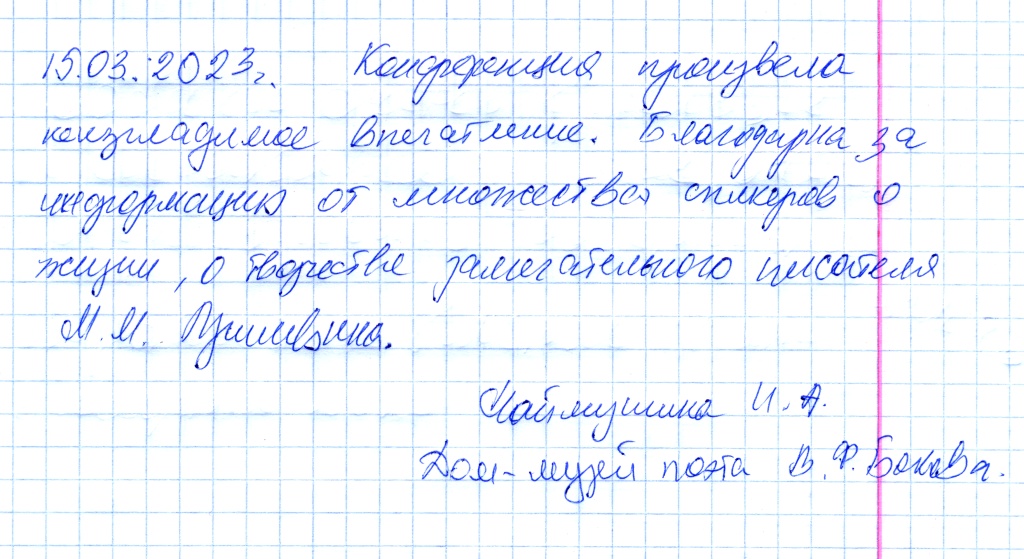 15.03.2023г. Конференция произвела
неизгладимое впечатление. Благодарна за
информацию от множества спикеров о
жизни, о творчестве замечательного писателя
М.М. Пришвина.
Наймушина И.А.
Дом-музей поэта В.Ф. Бокова.